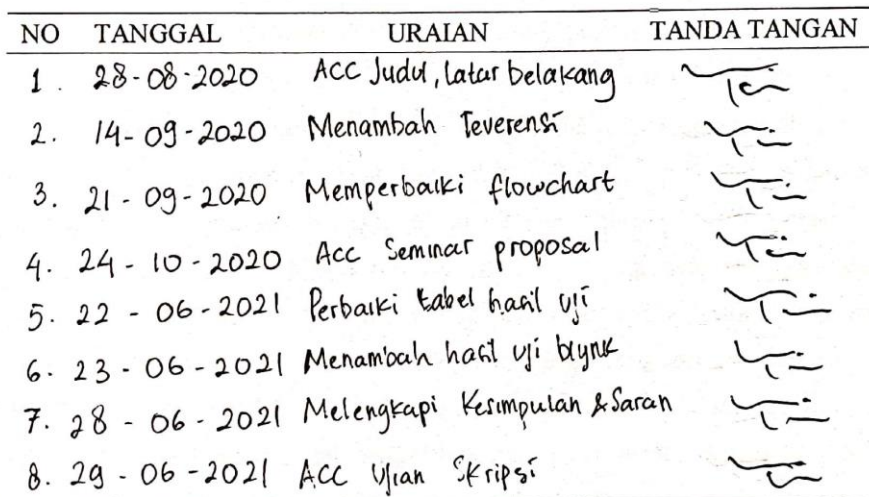 NO TANGGAL URAIAN TANDA TANGAN
1. 28-08-2020 ACC Judul, latar belakang
2. 14-09-2020 Menambah Teverensi
3. 21-09-2020 Memperbaiki flowchart
4. 24-10-2020 Acc Seminar proposal
5. 22-06-2021 Perbaiki tabel hasil uji
6. 23-06-2021 Menambah hasil uji blynk
7. 28-06-2021 Melengkapi Kesimpulan & Saran
8. 29-06-2021 ACC Ujian Skripsi